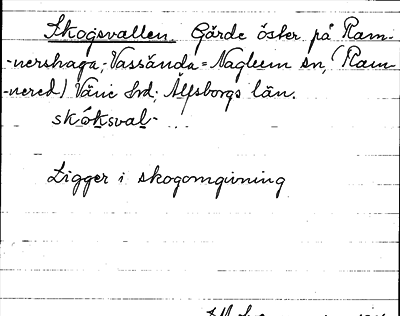 Skogsvallen. Gärde öster på Ram-
-nershaga, Vassända=Naglum sn, (Ram-
-nered) Väne hrd; Älfsborgs län.
skóksval- ...
Ligger i skogomgivning